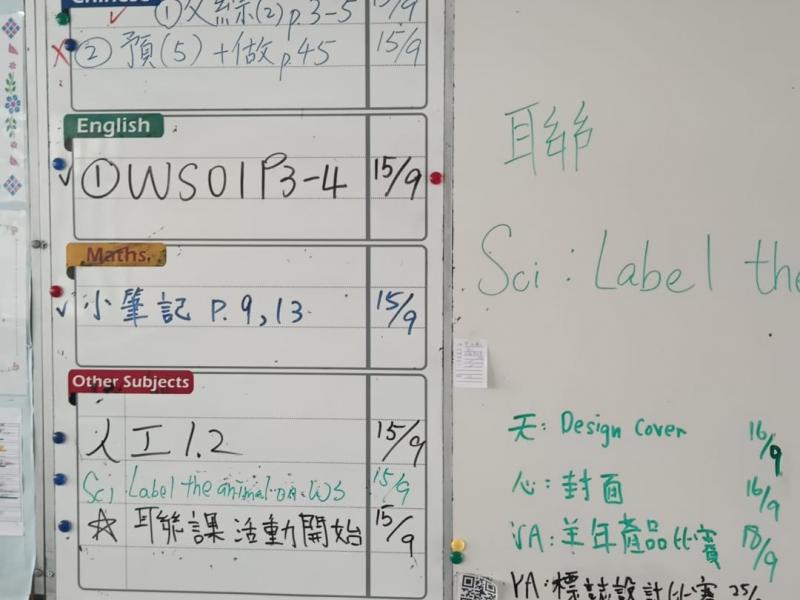 Chinese
①文綜(2)p.3-5 15/9
②預(5)+做p.45 15/9
English
①WS01P3-4 15/9
Maths
小筆記 P.9,13 15/9
Other Subjects
人工1.2 15/9
Sci Label the animal on WS 15/9
☆聯課活動開始 15/9
聯
Sci: Label the
天: Design cover 16/9
心: 封面 16/9
VA: 羊年產品比賽 18/9
VA: 標誌設計比賽 25/